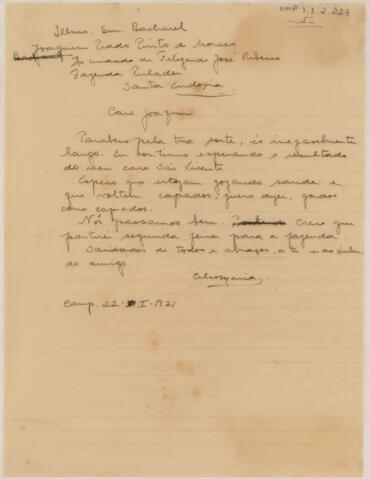 CMP 3.3.2.224
Illmo. Snr. Bacharel
Joaquim Prado Pinto de Moraes
Ao cuidado de Felizardo José Ribeiro
Fazenda Pulador
Santa Eudoxia
Caro Joaquim
Parabens pela tua sorte, és inegavelmente
largo. Eu continuo esperando o resultado
do meu caro São Vicente.
Espero que estejam gozando saude e
que voltem capados, quero dizer, gordos
como capados.
Nós passamos bem. Creio que
partirei segunda feira para a fazenda.
Saudades de todos e abraços, a ti e ao
do amigo
Camp. 22-I-1921